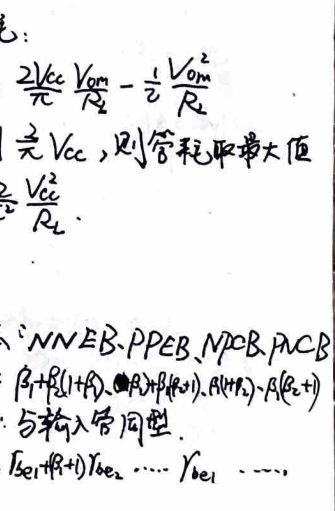 耗:
2Vcc/π Vom/RL - 1/2 Vom²/RL
2/π Vcc,则管耗取最大值
Vcc²/RL.
:NNEB、PPEB、NPCB、PNCB
β1+β2(1+β1)、β2)+β1(β2+1)、β1(1+β2)、β1(β2+1)
:与输入管同型.
rbe1+(β1+1)rbe2 ..... rbe1 .....